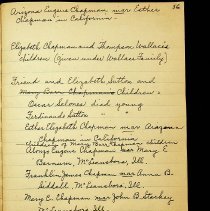 36
Arizona Eugene Chapman mar Esther
Chapman in California -
Elizabeth Chapman and Thompson Wallace's
children (Given under Wallace Family)
Friend and Elizabeth Sutton and
Mary Barr Chapman's Children =
Oscar deLones died young
Ferdinando Sutton "
Esther Elizabeth Chapman mar Arizona
Chapman in California
Children of Mary Barr Chapman children
Alonzo Eugene Chapman mar Mary E.
McLeansboro, Ill.
Franklin Jones Chapman mar Anna B.
Siddall McLeansboro, Ill.
Mary E. Chapman mar John B. Starkey
McLeansboro, Ill.